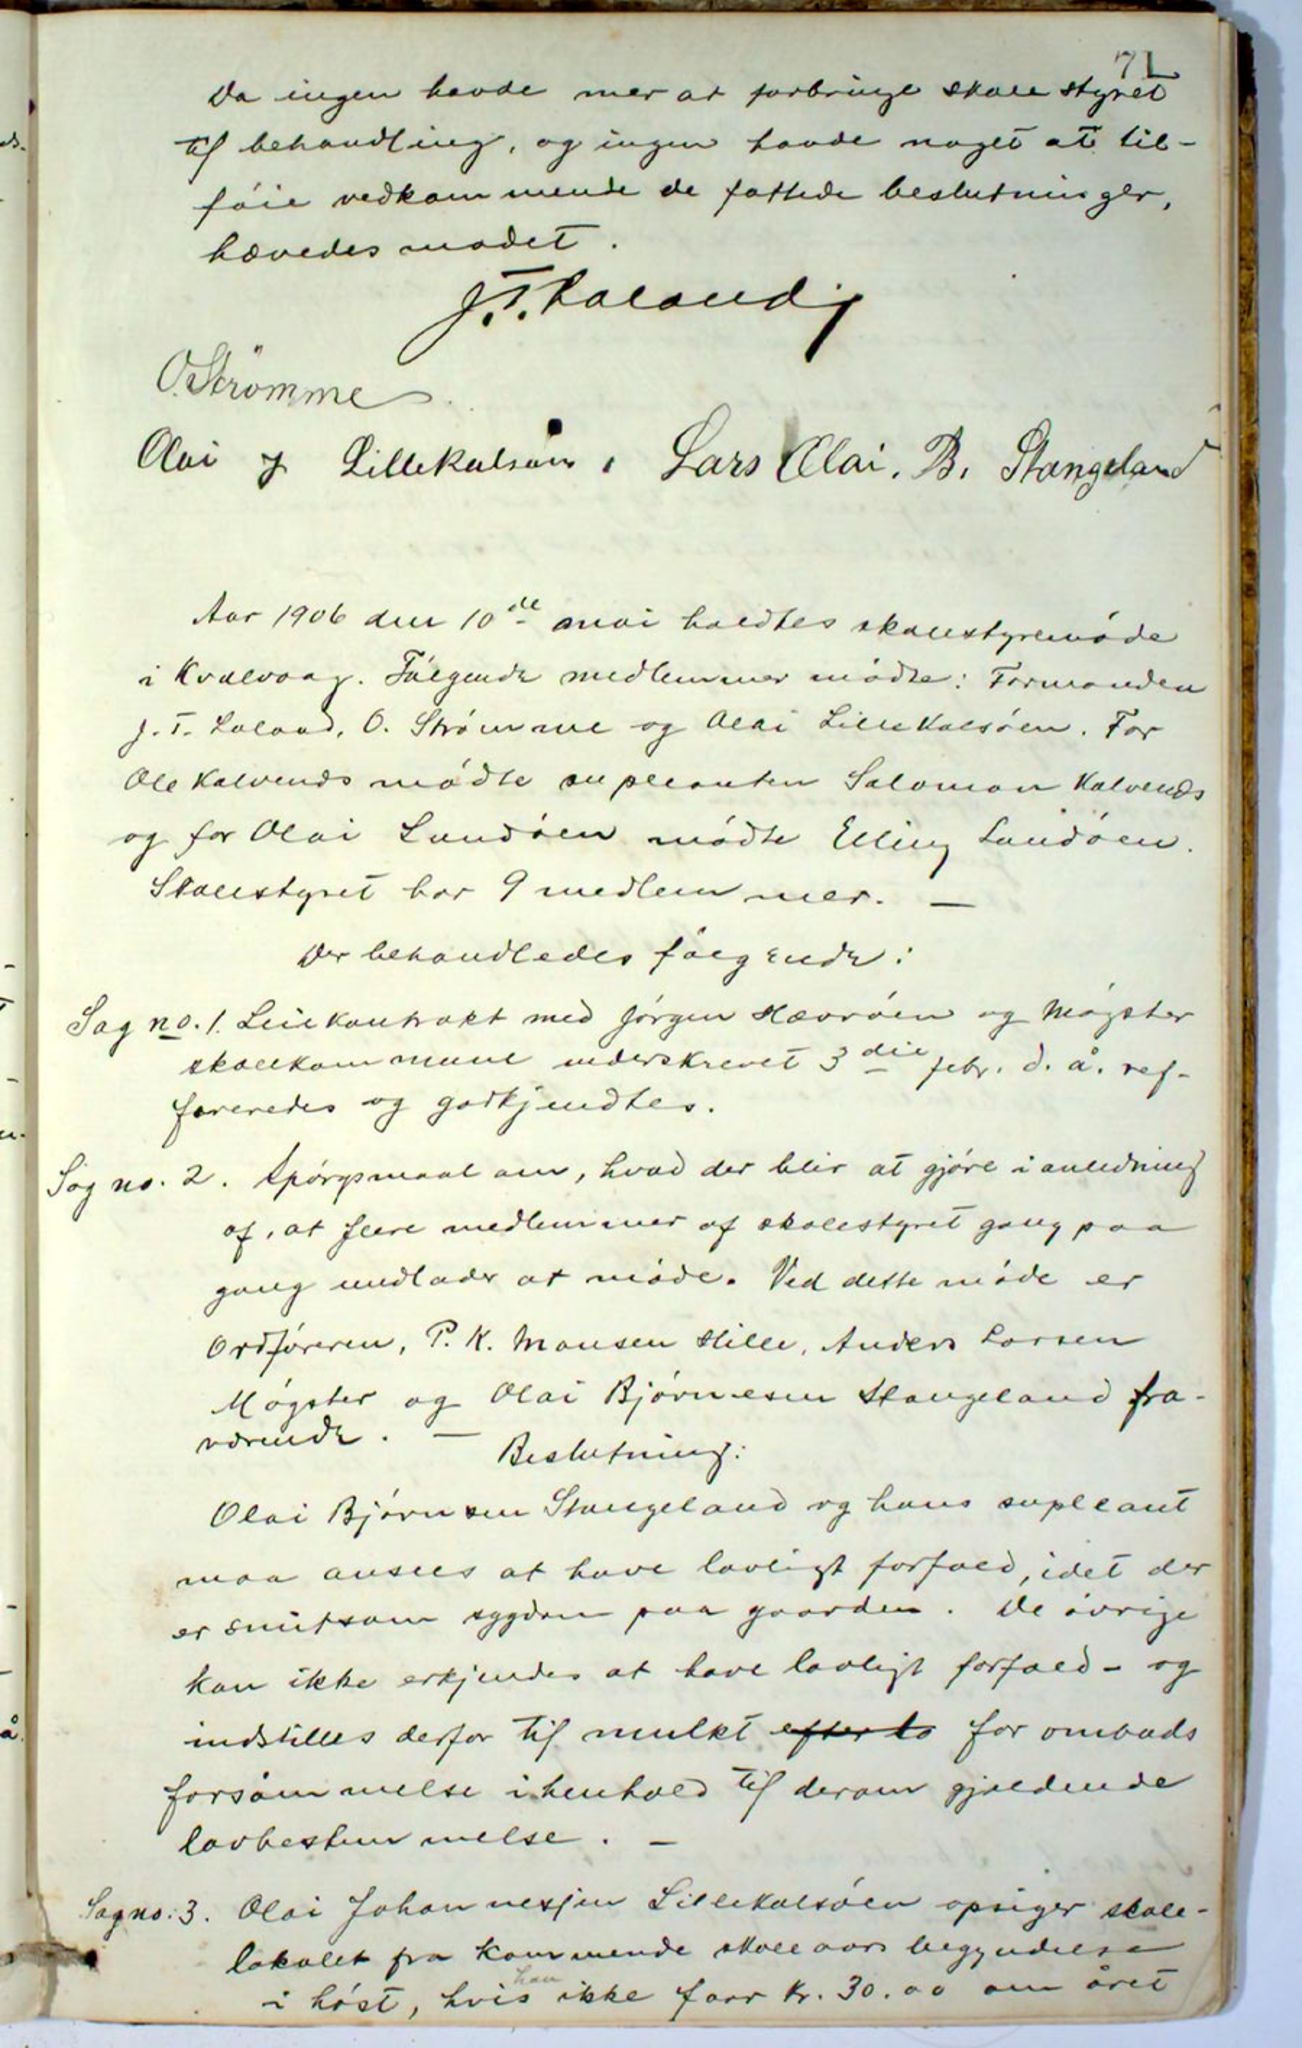 71
Da ingen havde mer at forbringe skolestyret
til behandling, og ingen havde noget at til-
føie vedkommende de fattede beslutninger,
hævedes mødet.
J. T. Laland
O. Strømme
Olai J Lillekalsøen. Lars Olai. B. Stangeland
Aar 1906 den 10de mai holdtes skolestyremøde
i Kvalvaag. Følgende medlemmer mødte: Formanden
J. T. Laland, O. Strømme og Olai Lillekalsøen. For
Ole Kalvenes mødte supleanten Salomon Kalvenes
og for Olai Lundøen mødte Elling Lundøen.
Skolestyret har 9 medlemmer. —
Der behandledes følgende:
Sag no. 1. Leiekontrakt med Jørgen Hævrøen og Møgster
skolekommune underskrevet 3die febr. d. å. ref-
fereredes og godkjendtes.
Sag no. 2. Spørgsmaal om, hvad der blir at gjøre i anledning
af, at flere medlemmer af skolestyret gang paa
gang undlader at møde. Ved dette møde er
Ordføreren, P. K. Monsen Hille, Anders Larsen
Møgster og Olai Bjørnesen Stangeland fra-
værende. —
Beslutning:
Olai Bjørnsen Stangeland og hans supleant
maa ansees at have lovligt forfald, idet der
er smitsom sygdom paa gaarden. De øvrige
kan ikke erkjendes at have lovligt forfald - og
indstilles derfor til mulkt efter lo for ombuds
forsømmelse i henhold til derom gjældende
lovbestemmelse. —
Sag no. 3. Olai Johannesjen Lillekalsøen opsiger skole-
lokalet fra kommende skoleaars begyndelse
i høst, hvis han ikke faar Kr. 30.00 om året